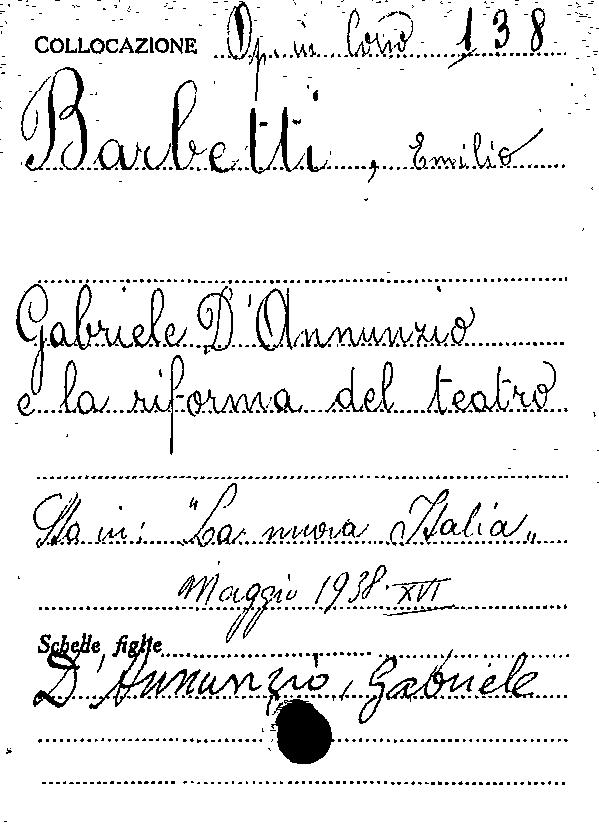 COLLOCAZIONE Op. in Cons 138
Barbetti, Emilio
Gabriele D'Annunzio
e la riforma del teatro
Sta in: "La nuova Italia„
Maggio 1938-XVI
Schede figlie
D'Annunzio, Gabriele